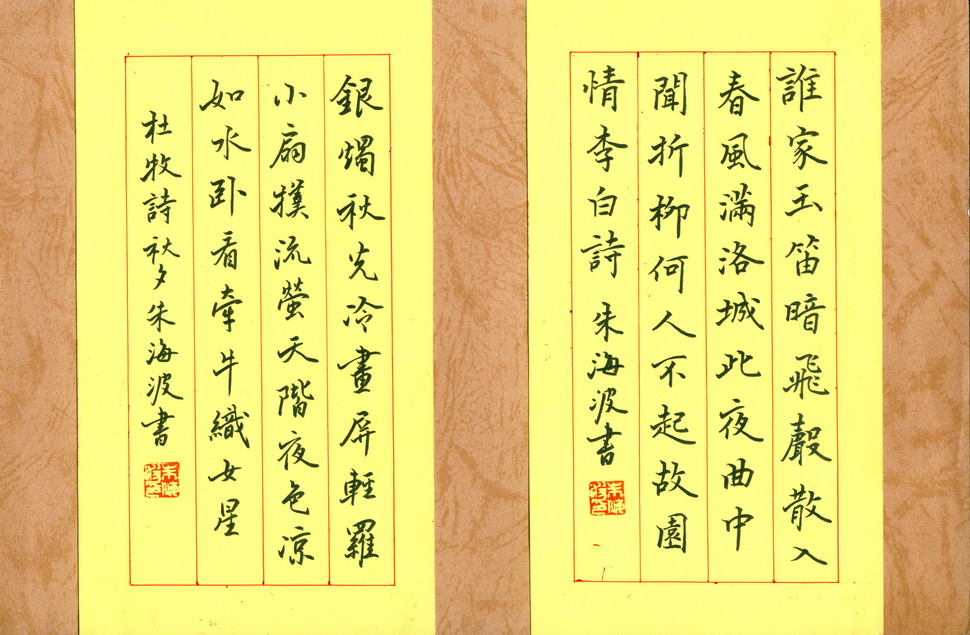 誰家玉笛暗飛聲散入
春風滿洛城此夜曲中
聞折柳何人不起故園
情李白詩 朱海波書
銀燭秋光冷畫屏輕羅
小扇撲流螢天階夜色涼
如水卧看牽牛織女星
杜牧詩秋夕朱海波書